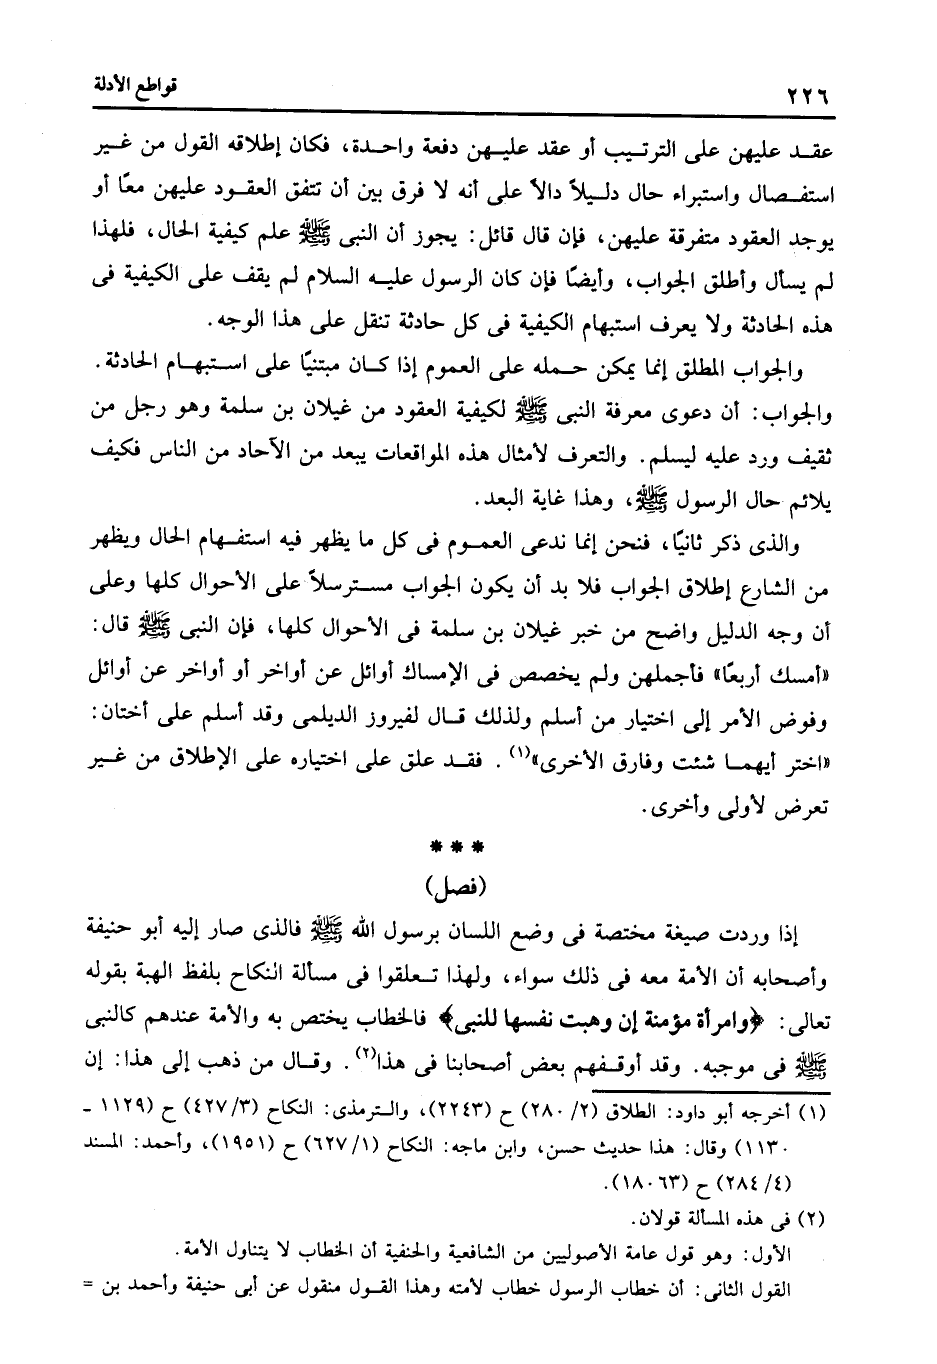 ٢٢٦
قواطع الأدلة
عقد عليهن على الترتيب أو عقد عليهن دفعة واحدة، فكان إطلاقه القول من غير
استفصال واستبراء حال دليلاً دالاً على أنه لا فرق بين أن تتفق العقود عليهن معًا أو
يوجد العقود متفرقة عليهن، فإن قال قائل: يجوز أن النبى ﷺ علم كيفية الحال، فلهذا
لم يسأل وأطلق الجواب، وأيضًا فإن كان الرسول عليه السلام لم يقف على الكيفية فى
هذه الحادثة ولا يعرف استبهام الكيفية فى كل حادثة تنقل على هذا الوجه.
والجواب المطلق إنما يمكن حمله على العموم إذا كان مبتنيًا على استبهام الحادثة.
والجواب: أن دعوى معرفة النبى ﷺ لكيفية العقود من غيلان بن سلمة وهو رجل من
ثقيف ورد عليه ليسلم. والتعرف لأمثال هذه المواقعات يبعد من الآحاد من الناس فكيف
يلائم حال الرسول ﷺ، وهذا غاية البعد.
والذى ذكر ثانيًا، فنحن إنما ندعى العموم فى كل ما يظهر فيه استفهام الحال ويظهر
من الشارع إطلاق الجواب فلا بد أن يكون الجواب مسترسلاً على الأحوال كلها وعلى
أن وجه الدليل واضح من خبر غيلان بن سلمة فى الأحوال كلها، فإن النبى ﷺ قال:
«أمسك أربعًا» فأجملهن ولم يخصص فى الإمساك أوائل عن أواخر أو أواخر عن أوائل
وفوض الأمر إلى اختيار من أسلم ولذلك قال لفيروز الديلمى وقد أسلم على أختان:
«اختر أيهما شئت وفارق الأخرى»(١). فقد علق على اختياره على الإطلاق من غير
تعرض لأولى وأخرى.
* * *
(فصل)
إذا وردت صيغة مختصة فى وضع اللسان برسول الله ﷺ فالذى صار إليه أبو حنيفة
وأصحابه أن الأمة معه فى ذلك سواء، ولهذا تعلقوا فى مسألة النكاح بلفظ الهبة بقوله
تعالى: ﴿وامرأة مؤمنة إن وهبت نفسها للنبى﴾ فالخطاب يختص به والأمة عندهم كالنبى
ﷺ فى موجبه. وقد أوقفهم بعض أصحابنا فى هذا(٢). وقال من ذهب إلى هذا: إن
(١) أخرجه أبو داود: الطلاق (٢/ ٢٨٠) ح (٢٢٤٣)، والترمذى: النكاح (٤٢٧/٣) ح (١١٢٩ ـ
١١٣٠) وقال: هذا حديث حسن، وابن ماجه: النكاح (٦٢٧/١) ح (١٩٥١)، وأحمد: المسند
(٢٨٤/٤) ح (١٨٠٦٣).
(٢) فى هذه المسألة قولان.
الأول: وهو قول عامة الأصوليين من الشافعية والحنفية أن الخطاب لا يتناول الأمة.
القول الثانى: أن خطاب الرسول خطاب لأمته وهذا القول منقول عن أبى حنيفة وأحمد بن =